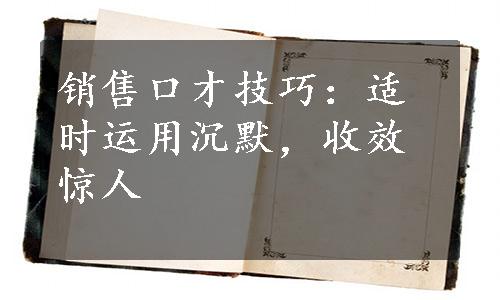 销售口才技巧：适
时运用沉默，收效
惊人